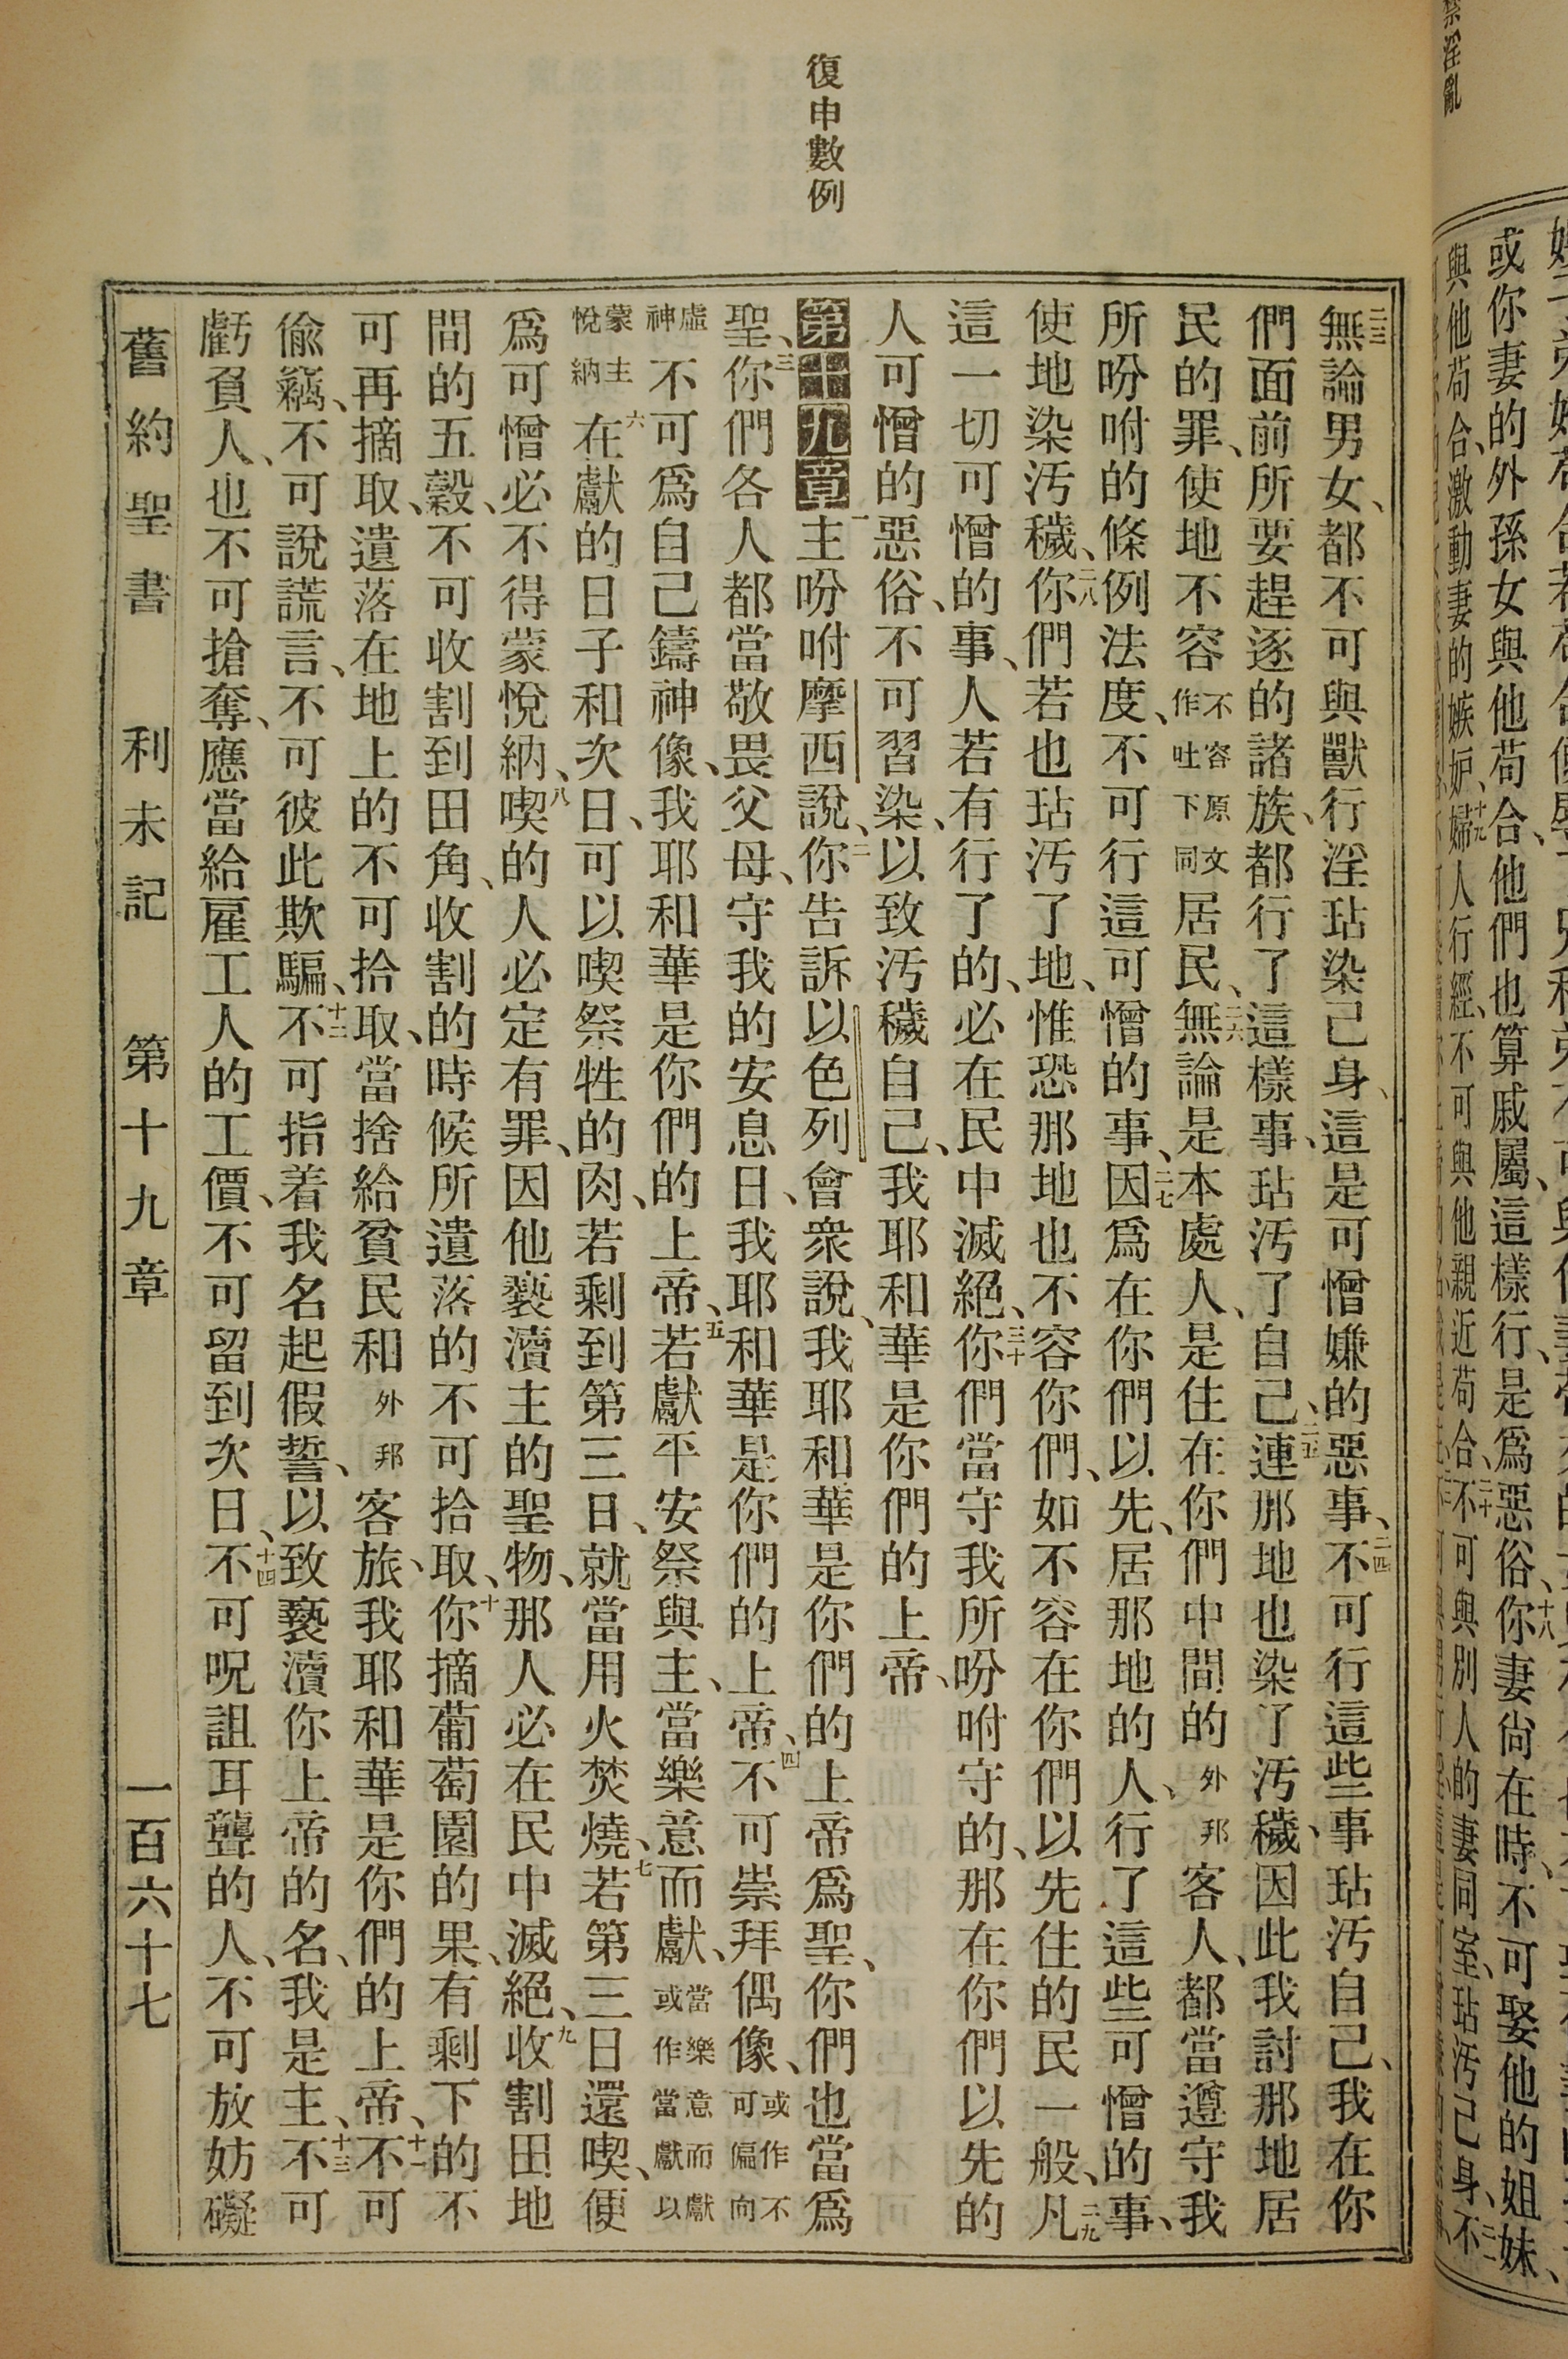 復申數例
二三無論男女、都不可與獸行淫玷染己身、這是可憎嫌的惡事、二四不可行這些事玷汚自己、我在你
們面前所要趕逐的諸族、都行了這樣事、玷汚了自己、二五連那地也染了汚穢、因此我討那地居
民的罪、使地不容不容原文作吐下同居民、二六無論是本處人、是住在你們中間的外邦客人、都當遵守我
所吩咐的條例法度、不可行這可憎的事、二七因爲在你們以先、居那地的人、行了這些可憎的事、
使地染汚穢、二八你們若也玷汚了地、惟恐那地也不容你們、如不容在你們以先住的民一般、二九凡
這一切可憎的事、人若有行了的、必在民中滅絕、三十你們當守我所吩咐守的、那在你們以先的
人可憎的惡俗、不可習染、以致汚穢自己、我耶和華是你們的上帝、
第十九章一主吩咐摩西說、二你告訴以色列會衆說、我耶和華是你們的上帝爲聖、你們也當爲
聖、三你們各人都當敬畏父母、守我的安息日、我耶和華是你們的上帝、四不可崇拜偶像、或作不可偏向
虛神不可爲自己鑄神像、我耶和華是你們的上帝、五若獻平安祭與主、當樂意而獻、當樂意而獻或作當獻以
蒙主悅納六在獻的日子和次日、可以喫祭牲的肉、若剩到第三日、就當用火焚燒、七若第三日還喫、便
爲可憎必不得蒙悅納、八喫的人必定有罪、因他褻瀆主的聖物、那人必在民中滅絕、九收割田地
間的五穀、不可收割到田角、收割的時候所遺落的不可拾取、十你摘葡萄園的果、有剩下的不
可再摘取、遺落在地上的不可拾取、當捨給貧民和外邦客旅、我耶和華是你們的上帝、十一不可
偸竊、不可說謊言、不可彼此欺騙、十二不可指着我名起假誓、以致褻瀆你上帝的名、我是主、十三不可
虧負人、也不可搶奪、應當給雇工人的工價、不可留到次日、十四不可呪詛耳聾的人、不可放妨礙
舊約聖書 利未記 第十九章 一百六十七
禁淫亂
或你妻的外孫女與他苟合、他們也算戚屬、這樣行、是爲惡俗、十八你妻尙在時、不可娶他的姐妹、
與他苟合、激動妻的嫉妒、十九婦人行經、不可與他親近苟合、二十不可與別人的妻同室、玷汚己身、二一不